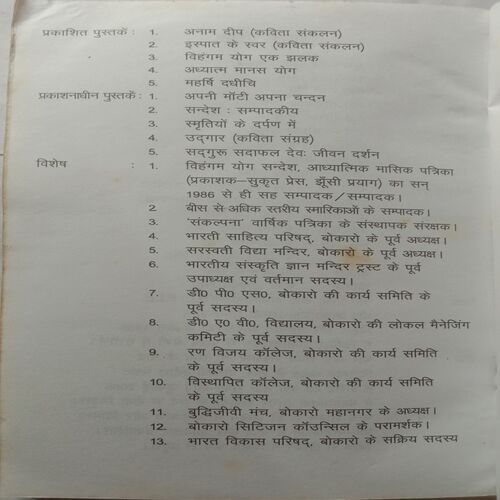 प्रकाशित पुस्तकें : 1. अनाम दीप (कविता संकलन)
2. इस्पात के स्वर (कविता संकलन)
3. विहंगम योग एक झलक
4. अध्यात्म मानस योग
5. महर्षि दधीचि
प्रकाशनाधीन पुस्तकें : 1. अपनी मॉटी अपना चन्दन
2. सन्देश : सम्पादकीय
3. स्मृतियों के दर्पण में
4. उद्‌गार (कविता संग्रह)
5. सद्‌गुरू सदाफल देवः जीवन दर्शन
विशेष : 1. विहंगम योग सन्देश, आध्यात्मिक मासिक पत्रिका
(प्रकाशक–सुकृत प्रेस, झूँसी प्रयाग) का सन्
1986 से ही सह सम्पादक/सम्पादक।
2. बीस से अधिक स्तरीय स्मारिकाओं के सम्पादक।
3. 'संकल्पना' वार्षिक पत्रिका के संस्थापक संरक्षक।
4. भारती साहित्य परिषद्, बोकारो के पूर्व अध्यक्ष।
5. सरस्वती विद्या मन्दिर, बोकारो के पूर्व अध्यक्ष।
6. भारतीय संस्कृति ज्ञान मन्दिर ट्रस्ट के पूर्व
उपाध्यक्ष एवं वर्तमान सदस्य।
7. डी0 पी0 एस0, बोकारो की कार्य समिति के
पूर्व सदस्य।
8. डी0 ए0 वी0, विद्यालय, बोकारो की लोकल मैनेजिंग
कमिटी के पूर्व सदस्य।
9. रण विजय कॉलेज, बोकारो की कार्य समिति
के पूर्व सदस्य।
10. विस्थापित कॉलेज, बोकारो की कार्य समिति
के पूर्व सदस्य
11. बुद्धिजीवी मंच, बोकारो महानगर के अध्यक्ष।
12. बोकारो सिटिजन कॉउन्सिल के परामर्शक।
13. भारत विकास परिषद्, बोकारो के सक्रिय सदस्य